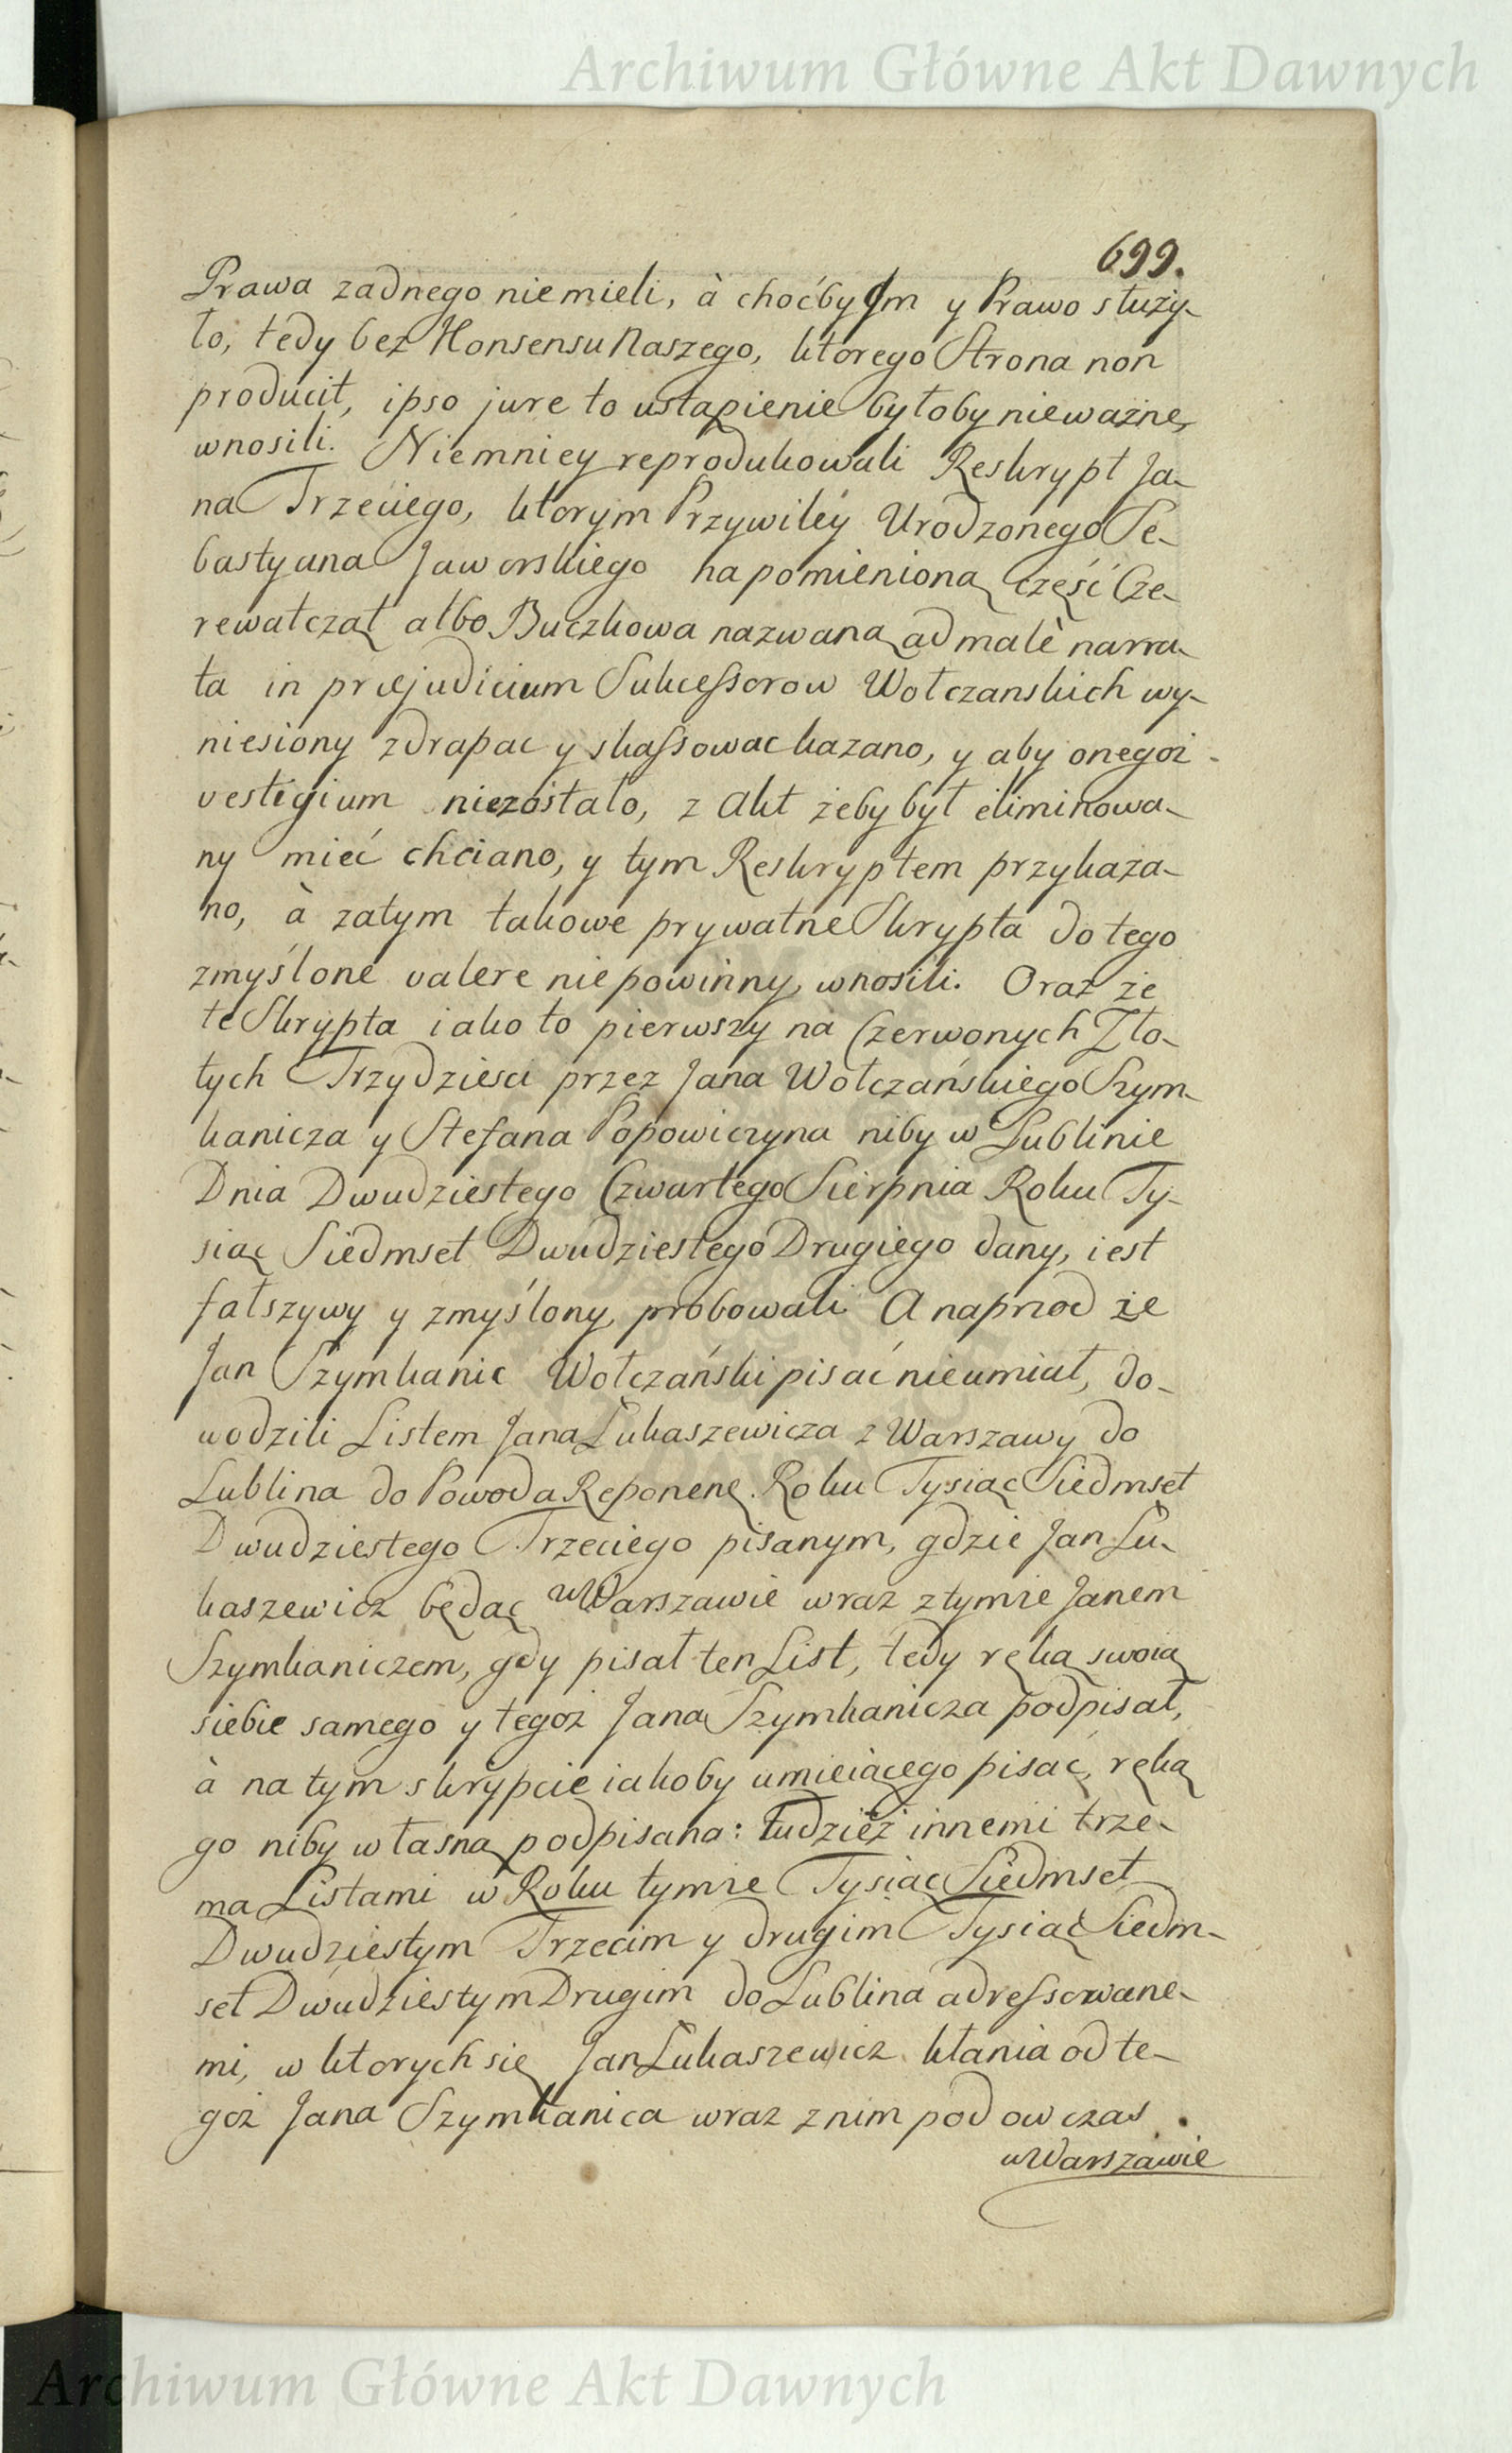 Archiwum Główne Akt Dawnych
699.
Prawa zadnego niemieli, à choćby Jm y Prawo służy-
ło, tedy bez Konsensu Naszego, ktorego Strona non
producit, ipso jure to ustąpienie byłoby nieważne,
wnosili. Niemniey reprodukowali Reskrypt Ja-
na Trzeciego, ktorym Przywiley Urodzonego Se-
bastyana Jaworskiego na pomienioną część Cze-
rewatczał albo Buczkowa nazwaną ad malè narra-
ta in præjudicium Sukcessorow Wołczanskich wy-
niesiony zdrapac y skassowac kazano, y aby onegoż
vestigium niezostało, z Akt żeby był eliminowa-
ny mieć chciano, y tym Reskryptem przykaza-
no, à zatym takowe prywatne Skrypta do tego
zmyślone valere niepowinny, wnosili. Oraz że
te Skrypta iako to pierwszy na Czerwonych Zło-
tych Trzydziesci przez Jana Wołczańskiego Szym-
kanicza y Stefana Popowiczyna niby w Lublinie
Dnia Dwudziestego Czwartego Sierpnia Roku Ty-
siąc Siedmset Dwudziestego Drugiego dany, iest
fałszywy y zmyślony, probowali. A naprzod że
Jan Szymkanic Wołczański pisać nieumiał, do-
wodzili Listem Jana Łukaszewicza z Warszawy do
Lublina do Powoda Reponenę. Roku Tysiąc Siedmset
Dwudziestego Trzeciego pisanym, gdzie Jan Łu-
kaszewicz będąc w Warszawie wraz z tymże Janem
Szymkaniczem, gdy pisał ten List, tedy ręką swoią
siebie samego y tegoż Jana Szymkanicza podpisał,
à na tym skrypcie iakoby umieiącego pisać, ręką
go niby własną podpisano: tudzież innemi trze-
ma Listami w Roku tymże Tysiąc Siedmset
Dwudziestym Trzecim y drugim Tysiąc Siedm-
set Dwudziestym Drugim do Lublina adressowane-
mi, w ktorych się Jan Łukaszewicz kłania od te-
goż Jana Szymkanica wraz z nim pod ow czas
w Warszawie
Archiwum Główne Akt Dawnych